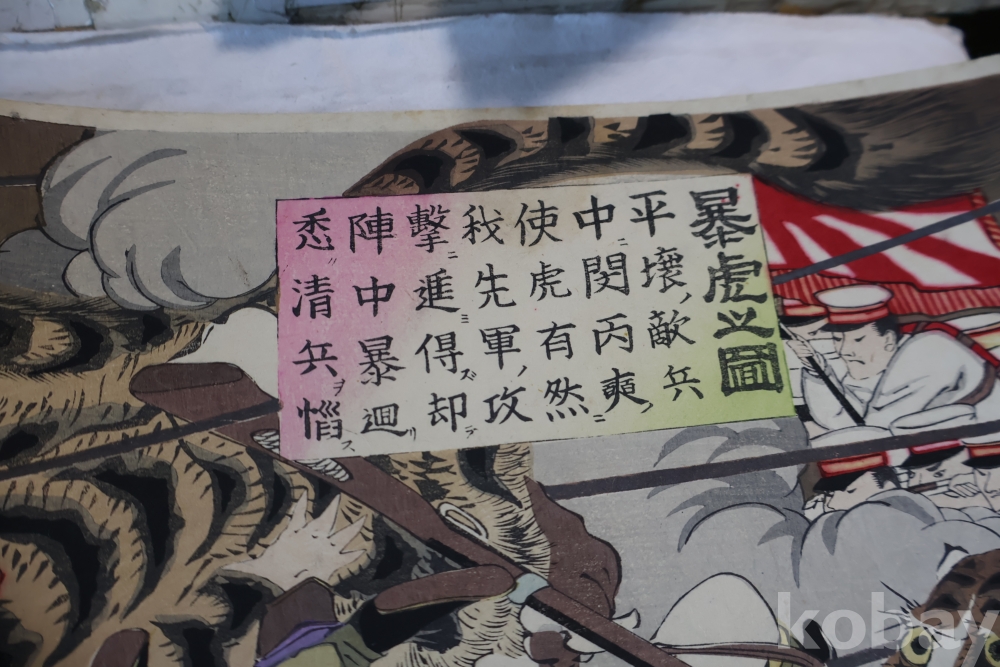 暴虎之圖
平壞、敵兵
中ニ閔丙爽ノ
使虎有然ニ
我先軍、攻
擊ニ進ミ得ズ却テ
陣中暴廻リ
悉ク清兵ヲ惱ス
kobay